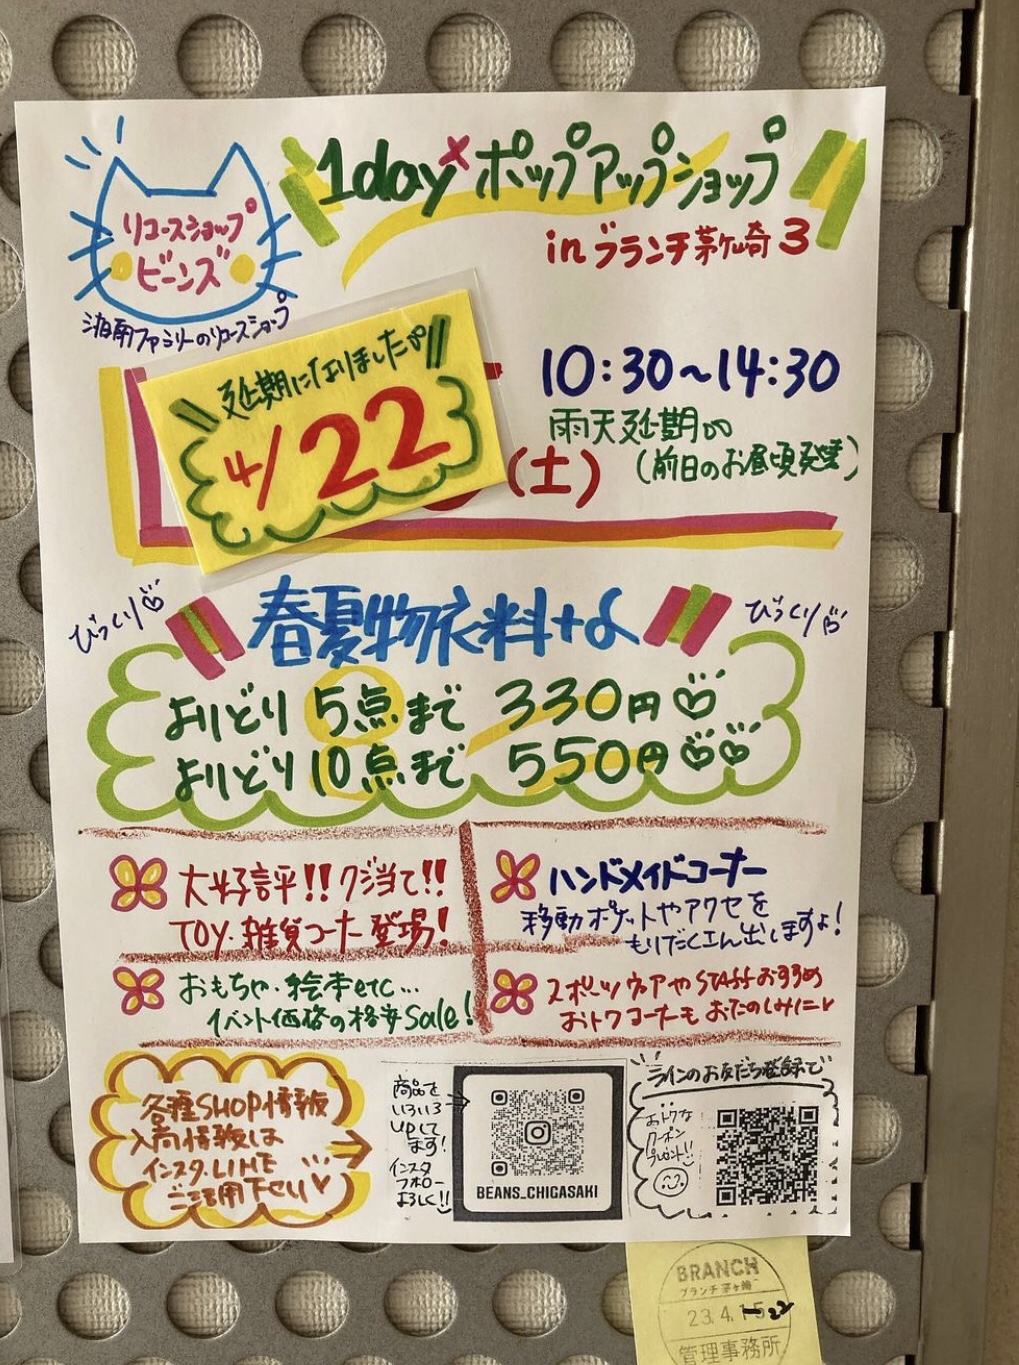 1day×ポップアップショップ
in ブランチ茅ヶ崎3
リユースショップ
ビーンズ
湘南ファミリーのリユースショップ
延期になりました
4/22
(土)
10:30~14:30
雨天延期
(前日のお昼頃発表)
びっくり
春夏物衣料+α
びっくり
よりどり 5点まで 330円♡
よりどり 10点まで 550円♡♡
大好評!! クジ当て!!
TOY・雑貨コーナー登場!
ハンドメイドコーナー
移動ポケットやアクセを
もりだくさん出しますよ!
おもちゃ・絵本etc...
イベント価格の格安Sale!
スポーツウェアやSTAFFおすすめ
おトクコーナーもおたのしみに♡
各種SHOP情報
入荷情報は
インスタ・LINE
ご活用下さい♡
商品を
いろいろ
UPして
ます!
インスタ
フォロー
よろしく!!
BEANS_CHIGASAKI
ラインのお友だち登録で
おトクな
クーポン
プレゼント!!
BRANCH
ブランチ茅ヶ崎
23.4.15 22
管理事務所